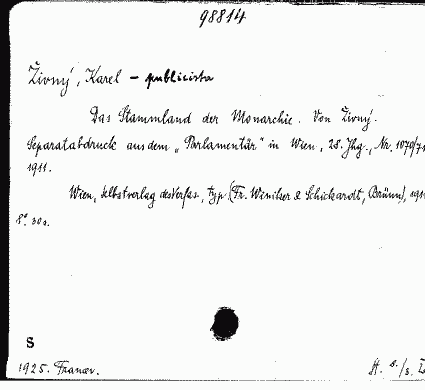 98814
Živný, Karel – publicista
Das Stammland der Monarchie. Von Živný.
Separatabdruck aus dem „Parlamentär" in Wien, 28. Jhg., Nr. 1070/71
1911.
Wien, Selbstverlag des Verfas., typ. (Fr. Winiker & Schickardt, Brünn), 191
8°. 30 s.
S
1925. Franer.
H. s./s.